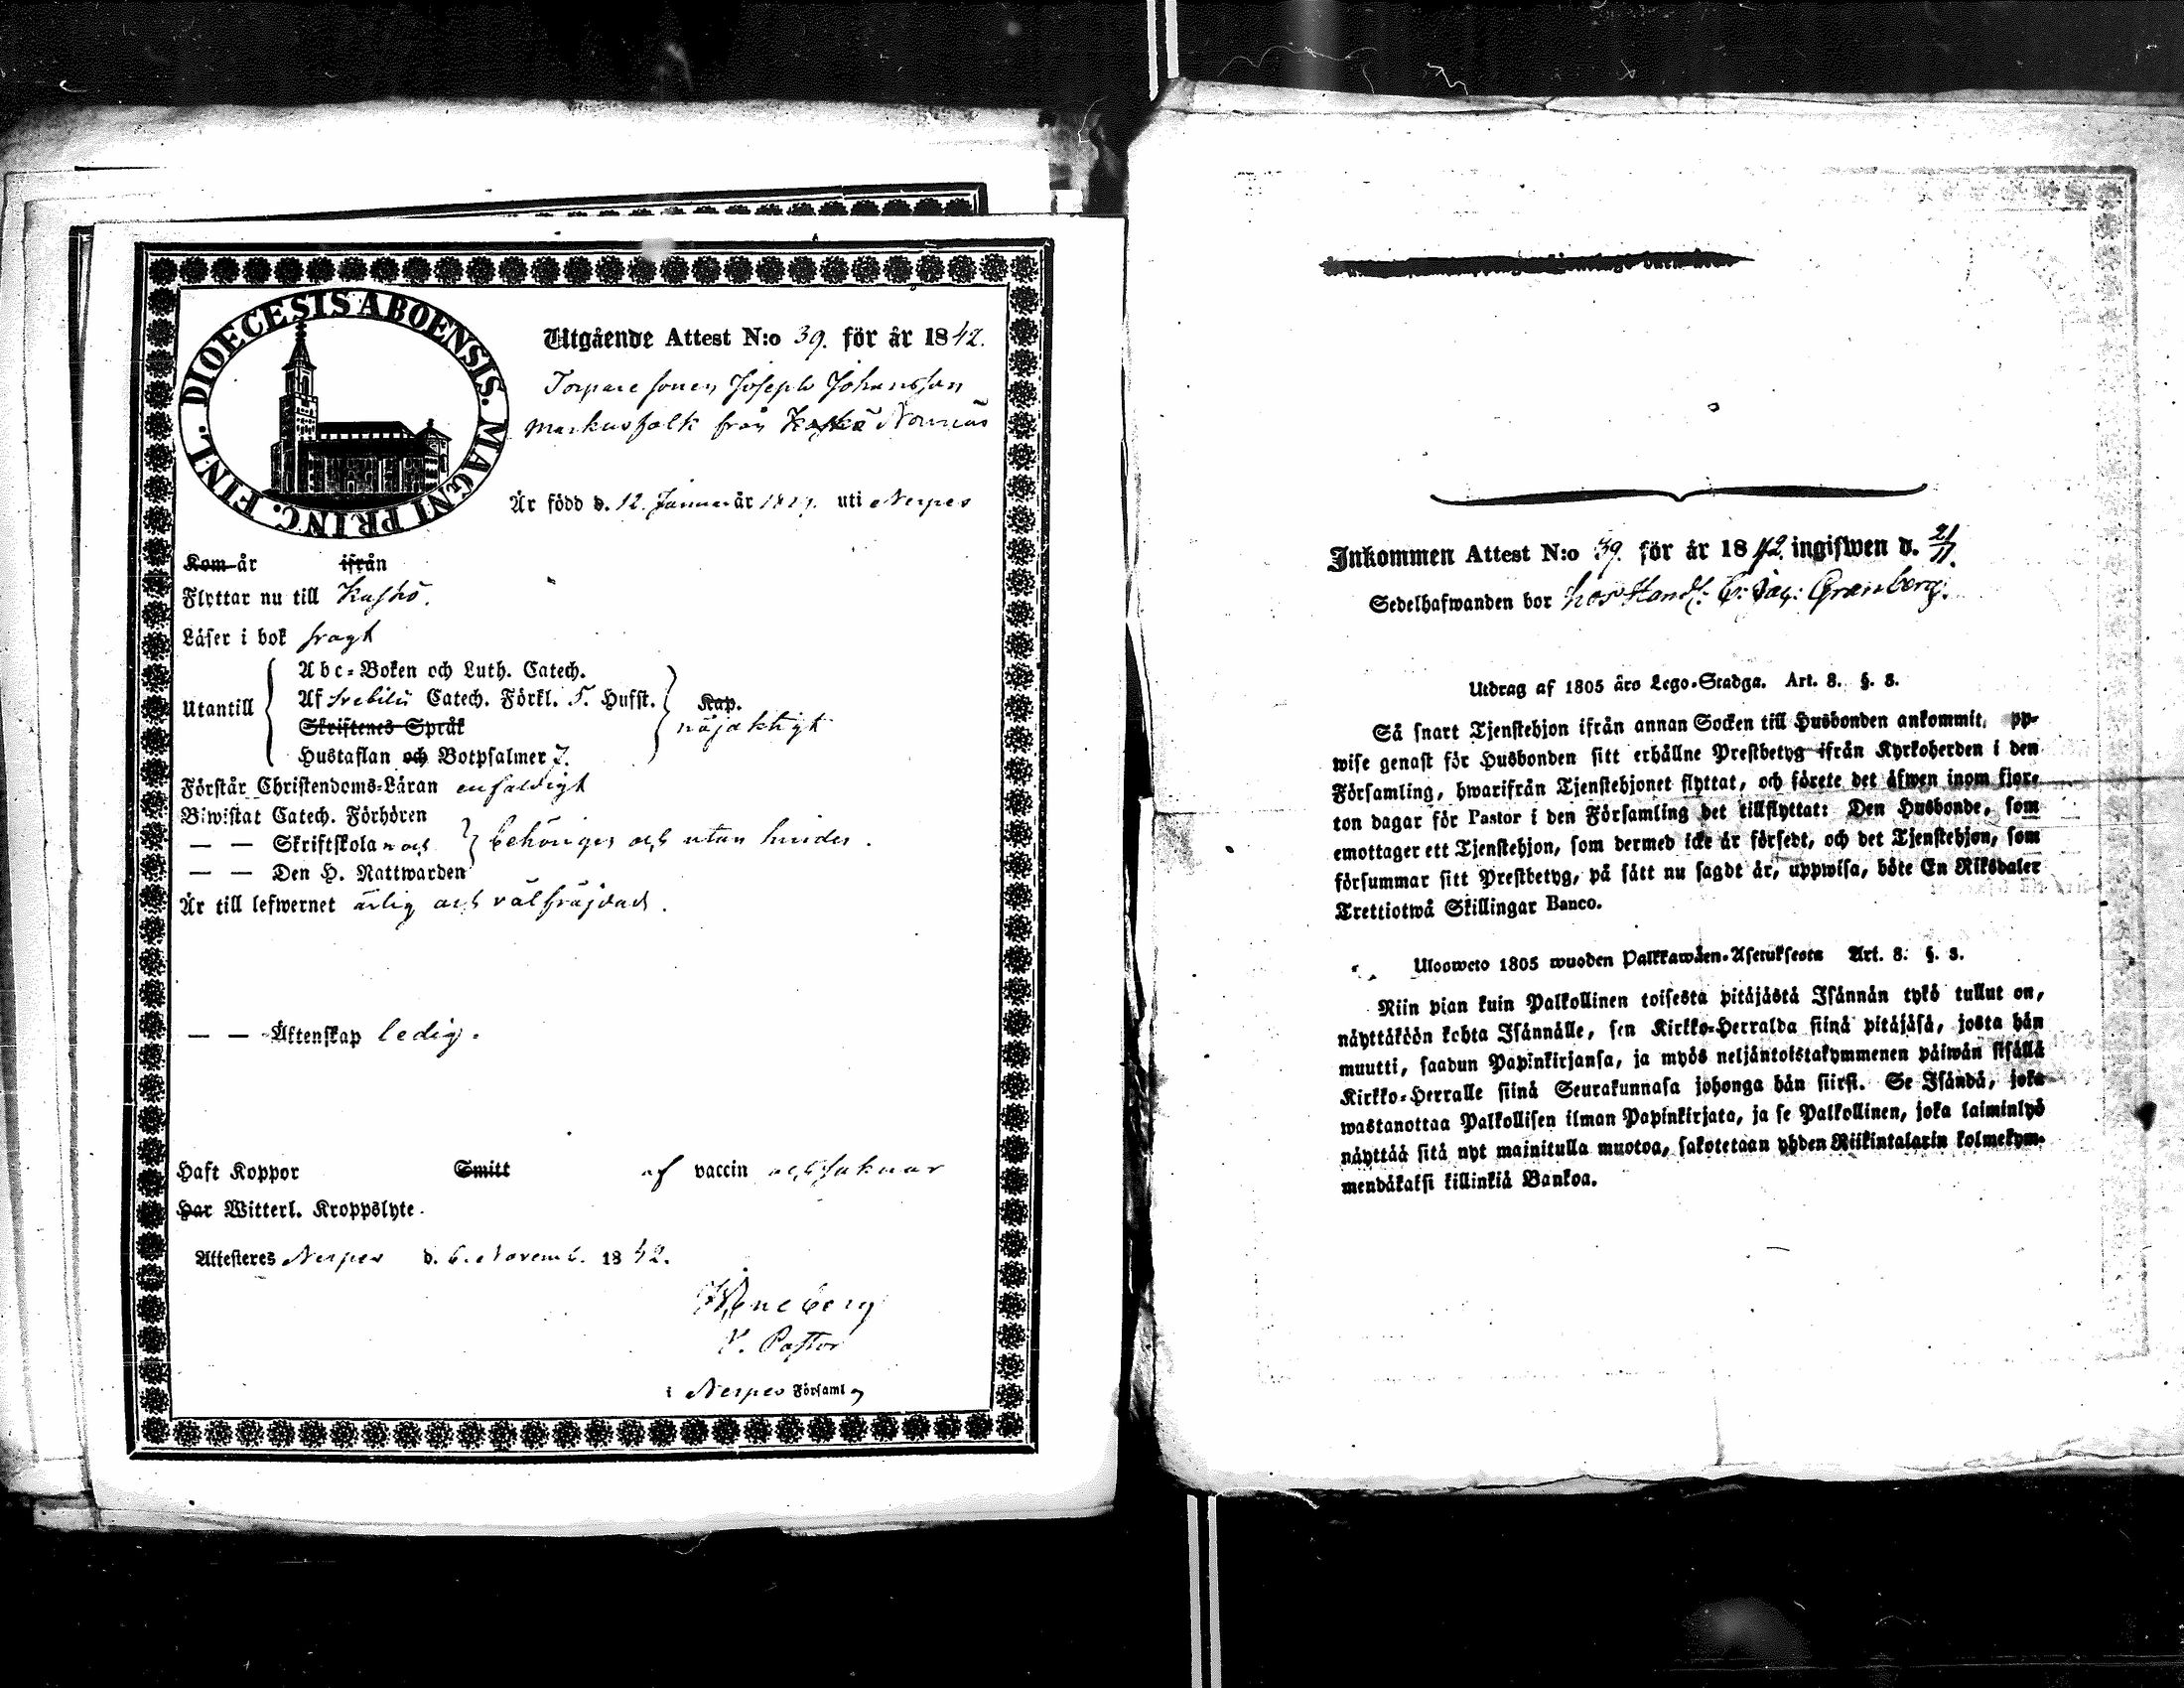 DIOECESIS ABOENSIS. MAGNI PRINC. FINL.
Utgående Attest N:o 39. för år 1842.
Torpare sonen Joseph Johansson
Markusfolk från Kaskö Nämnäs
Är född d. 12. Januar år 18 uti Nerpes
Kom år ifrån
Flyttar nu till Kaskö.
Läser i bok svagt
Utantill
Abc-Boken och Luth. Catech.
Af Svebilii Catech. Förkl. 5. Hufst.
Skriftenes Språk
Hustaflan och Botpsalmer 7.
Kap.
nöjaktigt
Förstår Christendoms-Läran enfaldigt
Biwistat Catech. Förhören
— — Skriftskolan och
— — Den H. Nattwarden
behörigen och utan hinder.
Är till lefwernet ärlig och välfräjdad.
— — Äktenskap ledig.
Haft Koppor Smitt af vaccin och
Har Witterl. Kroppslyte.
Attesteres Nerpes d. 6. Novemb. 1842.
V. Pastor
i Nerpes Församl
Inkommen Attest N:o 39. för år 1842. ingifwen d. 21/11.
Sedelhafwanden bor hos Handl: C: Jac: Granberg.
Utdrag af 1805 års Lego-Stadga. Art. 8. §. 8.
Så snart Tjenstehjon ifrån annan Socken till Husbonden ankommit, pp-
wise genast för Husbonden sitt erhållne Prestbetyg ifrån Kyrkoherden i den
Församling, hwarifrån Tjenstehjonet flyttat, och förete det äfwen inom fjor-
ton dagar för Pastor i den Församling det tillflyttat: Den Husbonde, som
emottager ett Tjenstehjon, som dermed icke är försedt, och det Tjenstehjon, som
försummar sitt Prestbetyg, på sätt nu sagdt är, uppwisa, böte En Riksdaler
Trettiotwå Skillingar Banco.
Ulosweto 1805 wuoden Palkkawäen-Asetuksesta Art. 8. §. 8.
Niin pian kuin Palkollinen toisesta pitäjästä Isännän tykö tullut on,
näyttäköön kohta Isännälle, sen Kirkko-Herralda siinä pitäjäsä, josta hän
muutti, saadun Papinkirjansa, ja myös neljäntoistakymmenen päiwän sisällä
Kirkko-Herralle siinä Seurakunnasa johonga hän siirsi. Se Isändä, joka
wastanottaa Palkollisen ilman Papinkirjata, ja se Palkollinen, joka laiminlyö
näyttää sitä nyt mainitulla muotoa, sakotetaan yhden Riikintalarin kolmekym-
mendäkaksi killinkiä Bankoa.